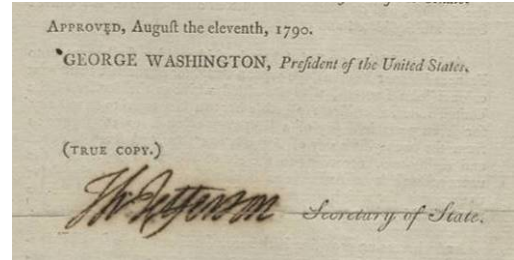 APPROVED, Auguſt the eleventh, 1790.
GEORGE WASHINGTON, Preſident of the United States.
(TRUE COPY.)
Th Jefferson Secretary of State.